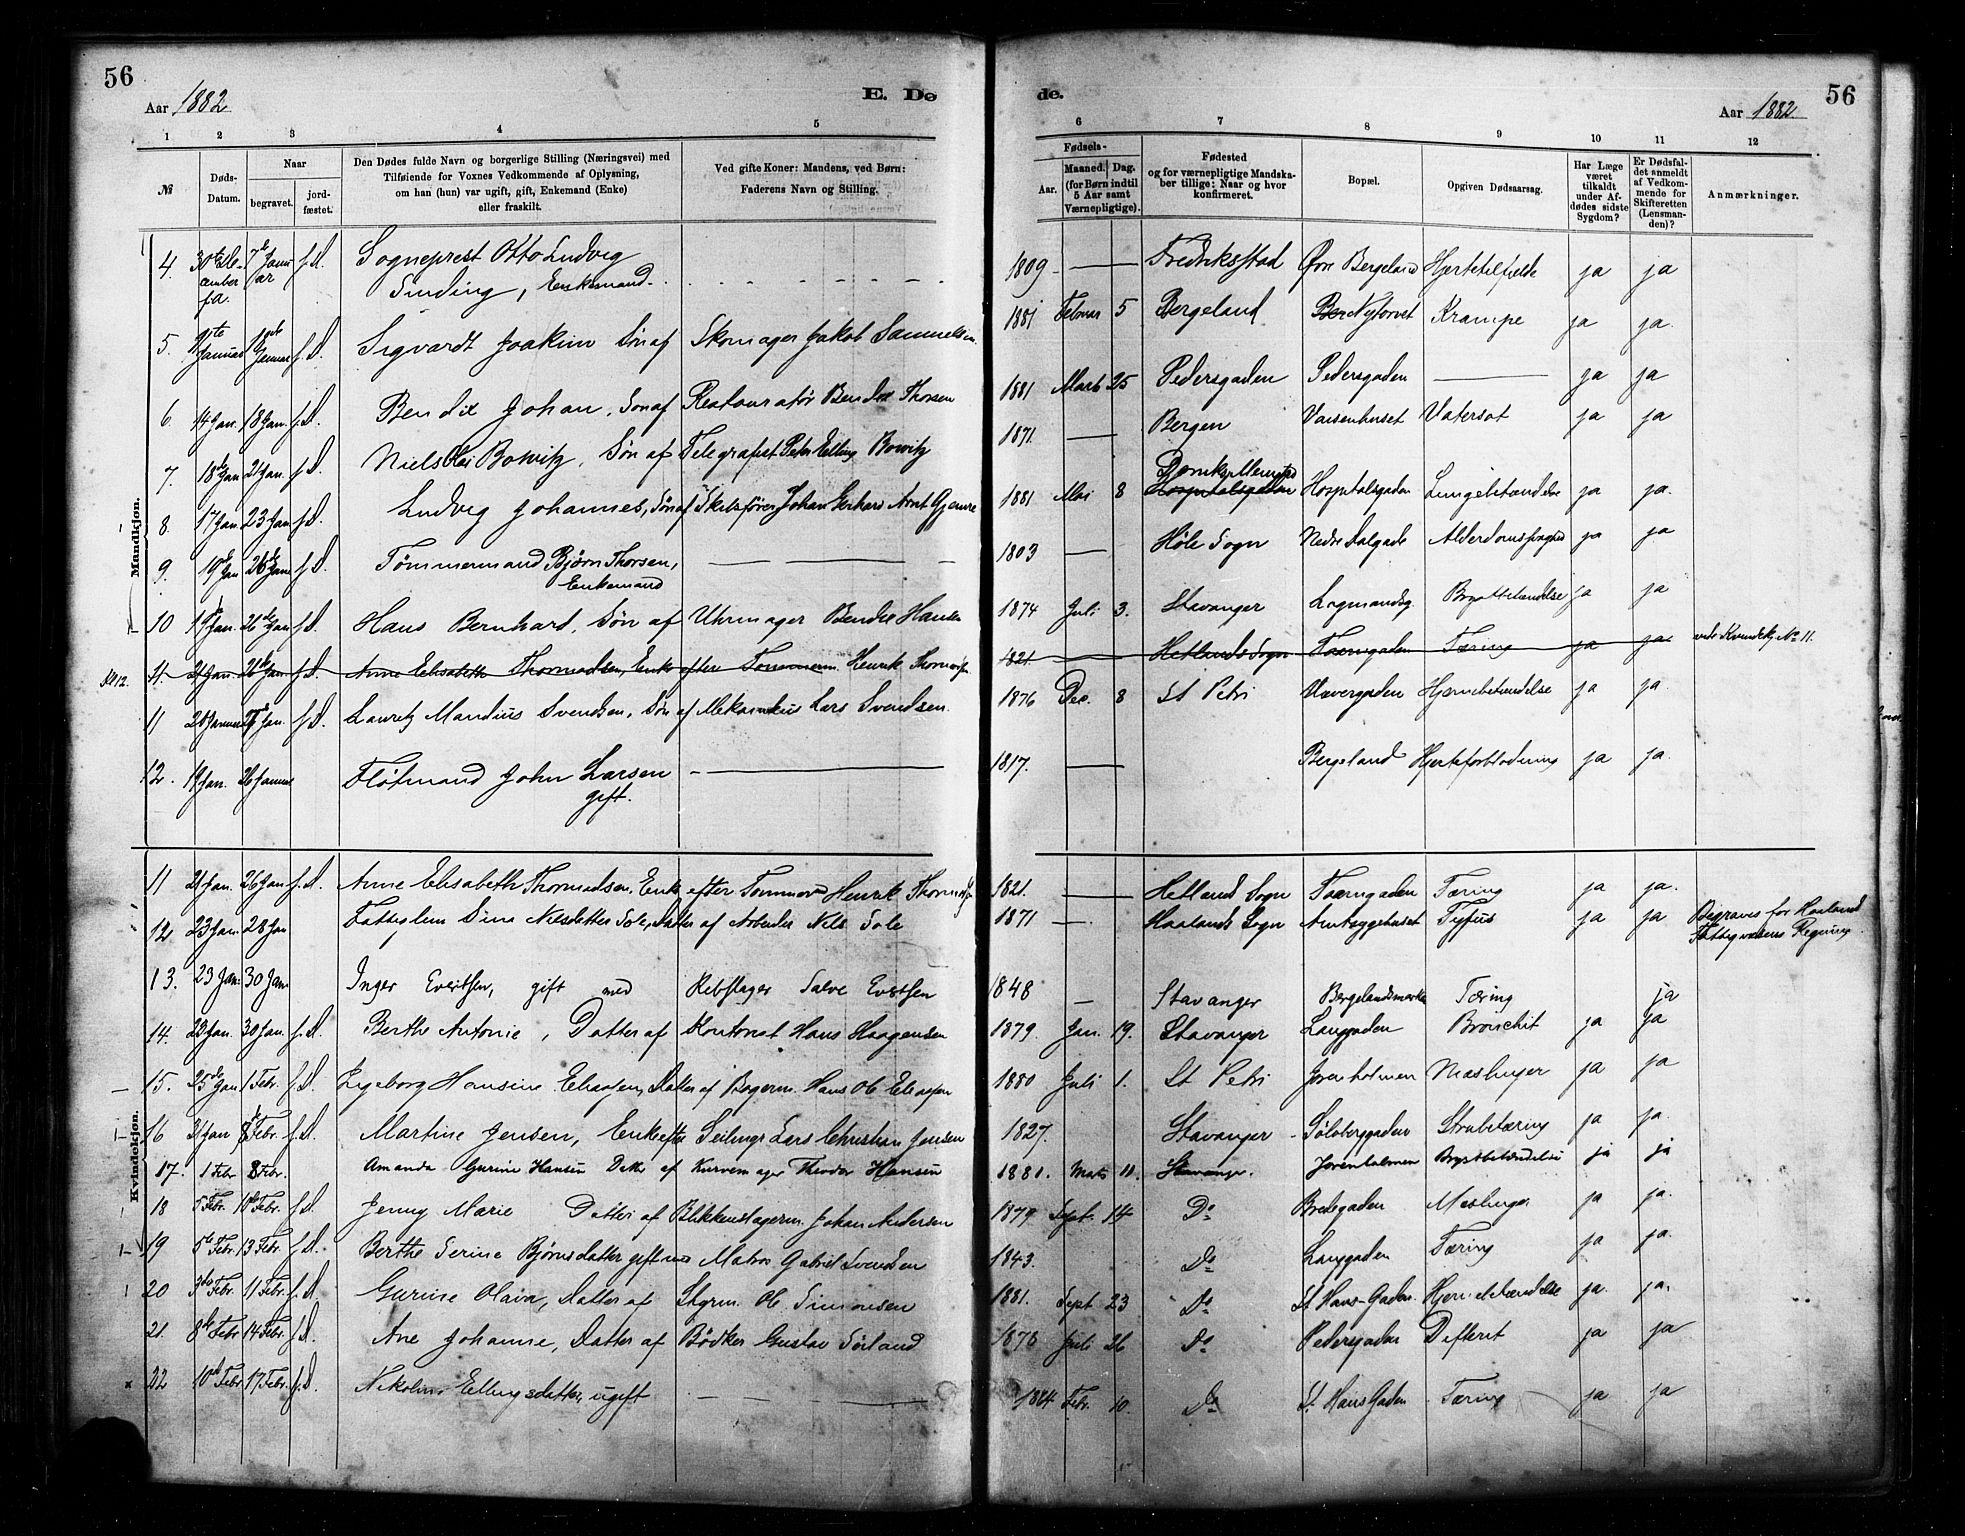 56
Aar 1882
E. Dø
de.
Aar 1882
56
1 2 3 4 5
6 7 8 9 10 11 12
№
Døds-Datum.
Naar
begravet.
jord-fæstet.
Den Dødes fulde Navn og borgerlige Stilling (Næringsvei) med
Tilføiende for Voxnes Vedkommende af Oplysning,
om han (hun) var ugift, gift, Enkemand (Enke)
eller fraskilt.
Ved gifte Koner: Mandens, ved Børn:
Faderens Navn og Stilling.
Fødsels-
Aar.
Maaned. Dag.
(for Børn indtil
5 Aar samt
Værnepligtige).
Fødested
og for værnepligtige Mandska-
ber tillige: Naar og hvor
konfirmeret.
Bopæl.
Opgiven Dødsaarsag.
Har Læge
været
tilkaldt
under Af-
dødes sidste
Sygdom?
Er Dødsfal-
det anmeldt
af Vedkom-
mende for
Skifteretten
(Lensman-
den)?
Anmærkninger.
Mandkjøn.
4. 30te Dec-ember f.a. 7de Januar f.A. Sogneprest Otto Ludvig Sinding, Enkemand. 1809 — Fredriksstad Øvre Bergeland Hjertetilfælde ja ja
5. Januar Januar f.A. Sigvardt Joakim Søn af Skomager Jakob Samuelsen 1881 Februar 5 Bergeland Nytorvet Krampe ja ja.
6. 14 Jan. 18 Jan. f.A. Bendix Johan, Søn af Restauratør Bendix Thorsen 1881 Marts 25 Pedersgaden Pedersgaden — ja ja
7. 18de Jan 21 Jan. f.A. Niels Bowitz, Søn af Telegrafist Peter Elling Bowitz 1871. — Bergen Vaisenhuset Vatersot ja ja
8. 17 Jan. 23 Jan f.A. Ludvig Johannes, Søn af Skibsfører Johan Gerhard Arnt Gjemre 1881 Mai 8 Hospitalsgaden Hospitalsgaden Lungebetændelse ja ja.
9. 19de Jan 26de Jan f.A. Tømmermand Bjørn Thorsen, Enkemand — 1803 — Høle Sogn Nedre Dalgade Alderdomssvaghed ja ja
10 19 Jan. 26de Jan f.A. Hans Bernhard, Søn af Uhrmager Bendix Hansen 1874 Juli 3. Stavanger Lagmandsg. Brystbetændelse ja ja
11. 21 Jan. 26de Jan. f.A. Anne Elisabeth Thormodsen, Enke efter Tømmerm. Henrik Thormodsen 1821. — Hetlands Sogn Tæring ja ja. vide Kvindekj. No 11.
11 Januar Jan. f.A. Lauretz Mandius Svendsen, Søn af Mekanikus Lars Svendsen. 1876 Dec. 8 St Petri Vævergaden Hjernebetændelse ja ja.
12. 19 Jan. 26 Januar Fløtmand John Larsen gift. — 1817. — Bergeland Hjerteforblødning ja ja.
Kvindekjøn.
11 21 Jan. 26 Jan f.A. Anne Elisabeth Thormodsen, Enke efter Tømmerm Henrik Thormodsen 1821. — Hetland Sogn Tæring ja ja.
12 23 Jan. 28 Jan Fattiglem Sina Nilsdatter Sole, Datter af Arbeider Nils Sole 1871 — Haalands Sogn Amtssygehuset Tyfus ja ja Begraves for Haaland Fattigvæsens Regning.
13. 23 Jan. 30 Jan Inger Evertsen, gift med Rebslager Salve Evertsen 1848 — Stavanger Bergelandsmarken Tæring ja
14. 23 Jan. 30 Jan. f.A. Berthe Antonie, Datter af Kontorist Hans Haagensen 1879. Jan. 19. Stavanger Langgaden Bronchit ja ja
15. 25de Jan 1 Febr. f.A. Ingeborg Hansine Eliasen, Datter af Bogerm. Hans Ol. Eliassen 1880 Juli 1. St Petri Jorenholmen Mæslinger ja ja
16 31 Jan Febr. f.A. Martine Jensen, Enke efter Seilingr. Lars Christian Jensen 1827. Stavanger Sølvberggaden Strubetæring ja ja.
17. 1 Febr 8 Febr. Amanda Gurine Hansen Datter af Kurvemager Theodor Hansen 1881. Marts 11. Stavanger. Jorenholmen Brystbetændelse ja ja
18 5 Febr. 10de Febr. f.A. Jenny Marie Datter af Blikkenslagerm. Johan Andersen 1879 Sept. 14 Do Bredegaden Mæslinger ja ja.
19 5te Febr. 13 Febr. f.A. Berthe Serine Bjørnsdatter gift med Matros Gabriel Svendsen 1843. Do Langgaden Tæring ja ja.
20 3die Febr. 11 Febr. f.A. Gurine Olava, Datter af Styrm. Ol. Simonsen 1881. Sept 23 Do St Hans-Gaden. Hjernebetændelse ja. ja.
21. 8de Febr 14 Febr. f.A. Ane Johanne, Datter af Bødker Gustav Sørland 1878 Juli 26 Do Pedersgaden Difterit ja ja
22 10de Febr. 17 Febr. f.A. Nikoline Ellingsdatter, ugift — 1864 Febr. 10. Do St. Hans Gaden Tæring ja ja